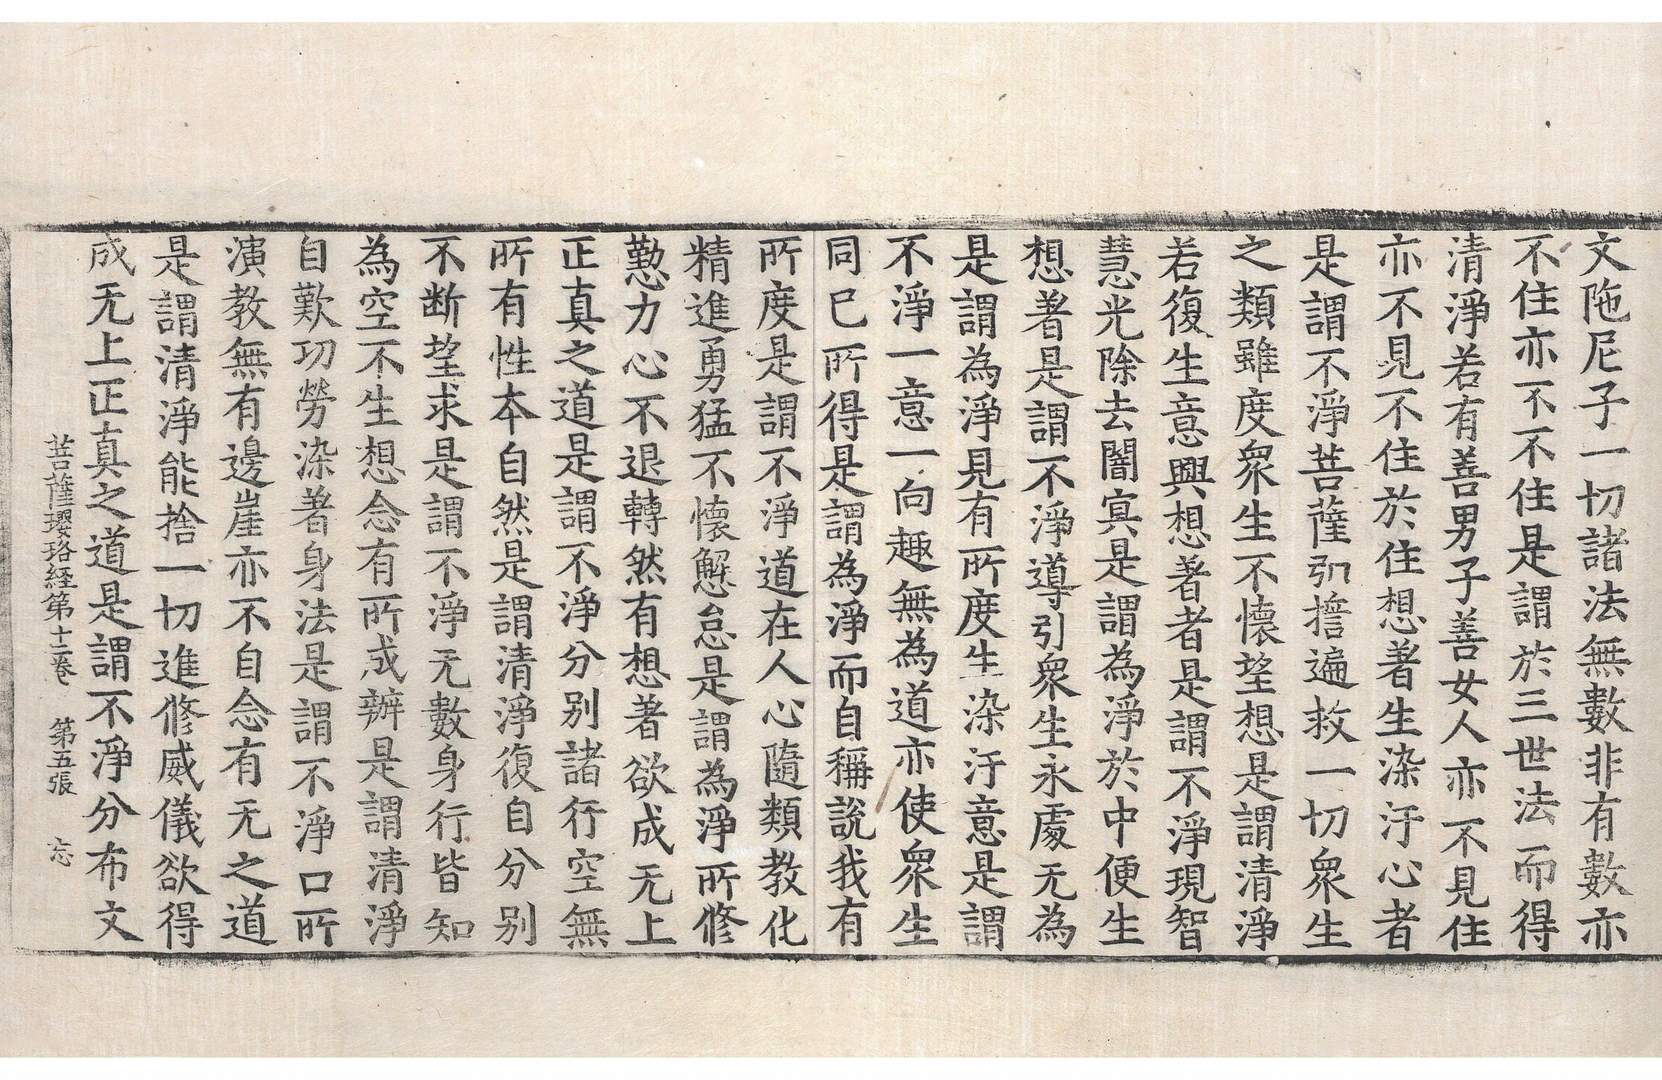 文陁尼子一切諸法無數非有數亦
不住亦不不住是謂於三世法而得
清淨若有善男子善女人亦不見住
亦不見不住於住想著生染汙心者
是謂不淨菩薩弘誓遍救一切衆生
之類雖度衆生不懷望想是謂清淨
若復生意興想著者是謂不淨現智
慧光除去闇冥是謂為淨於中便生
想著是謂不淨導引衆生永處无為
是謂為淨見有所度生染汙意是謂
不淨一意一向趣無為道亦使衆生
同已所得是謂為淨而自稱說我有
所度是謂不淨道在人心隨類教化
精進勇猛不懷懈怠是謂為淨所修
懃力心不退轉然有想著欲成无上
正真之道是謂不淨分別諸行空無
所有性本自然是謂清淨復自分別
不断望求是謂不淨无數身行皆知
為空不生想念有所成辦是謂清淨
自歎功勞染著身法是謂不淨口所
演教無有邊崖亦不自念有无之道
是謂清淨能捨一切進修威儀欲得
成无上正真之道是謂不淨分布文
菩薩瓔珞經第十二卷 第五張 忘